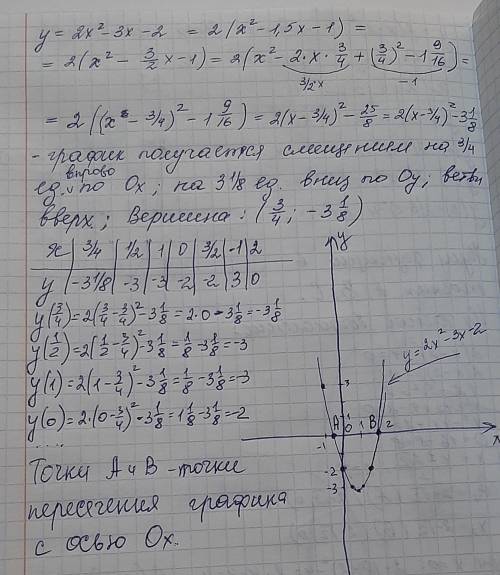 y = 2x² - 3x - 2 = 2(x² - 1,5x - 1) =
= 2(x² - 3/2 x - 1) = 2(x² - 2·x·3/4 + (3/4)² - 1 9/16) =
3/2·x -1
= 2((x - 3/4)² - 1 9/16) = 2(x - 3/4)² - 25/8 = 2(x - 3/4)² - 3 1/8
- график получается смещением на 3/4
ед. вправо по Ox; на 3 1/8 ед. вниз по Oy; ветви
вверх; Вершина: (3/4; -3 1/8)
x | 3/4 | 1/2 | 1 | 0 | 3/2 | -1 | 2
y | -3 1/8 | -3 | -3 | -2 | -2 | 3 | 0
y(3/4) = 2(3/4 - 3/4)² - 3 1/8 = 2·0 - 3 1/8 = -3 1/8
y(1/2) = 2(1/2 - 3/4)² - 3 1/8 = 1/8 - 3 1/8 = -3
y(1) = 2(1 - 3/4)² - 3 1/8 = 1/8 - 3 1/8 = -3
y(0) = 2·(0 - 3/4)² - 3 1/8 = 1 1/8 - 3 1/8 = -2
....
Точки A и B - точки
пересечения графика
с осью Ox.
y
y = 2x² - 3x - 2
3
A B
-1 0 1 2 x
-2
-3